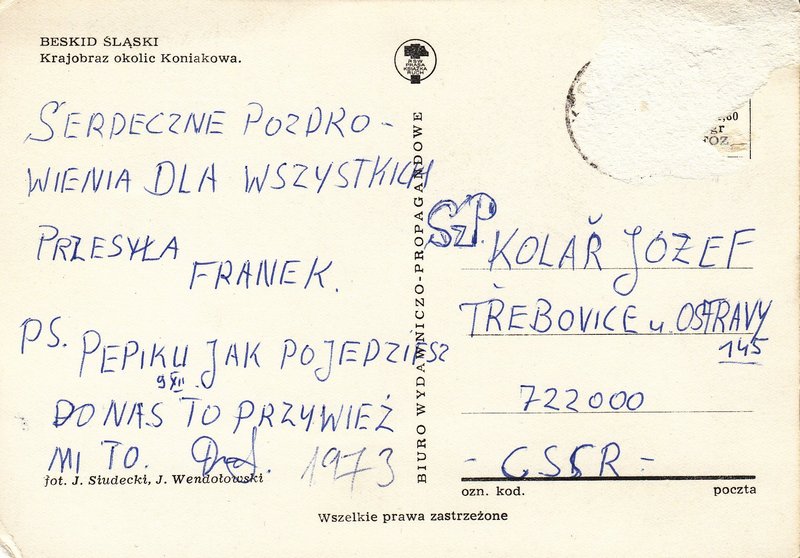 BESKID ŚLĄSKI
Krajobraz okolic Koniakowa.
RSW
PRASA
KSIĄŻKA
RUCH
SERDECZNE POZDRO-
WIENIA DLA WSZYSTKICH
PRZESYŁA
FRANEK.
PS. PEPIKU JAK POJEDZIESZ
9 XII.
DO NAS TO PRZYWIEŹ
MI TO.
1973
fot. J. Siudecki, J. Wendołowski
BIURO WYDAWNICZO-PROPAGANDOWE
,60
gr
SzP. KOLAŘ JOZEF
TŘEBOVICE u. OSTRAVY
145
722000
- CSSR -
ozn. kod. poczta
Wszelkie prawa zastrzeżone